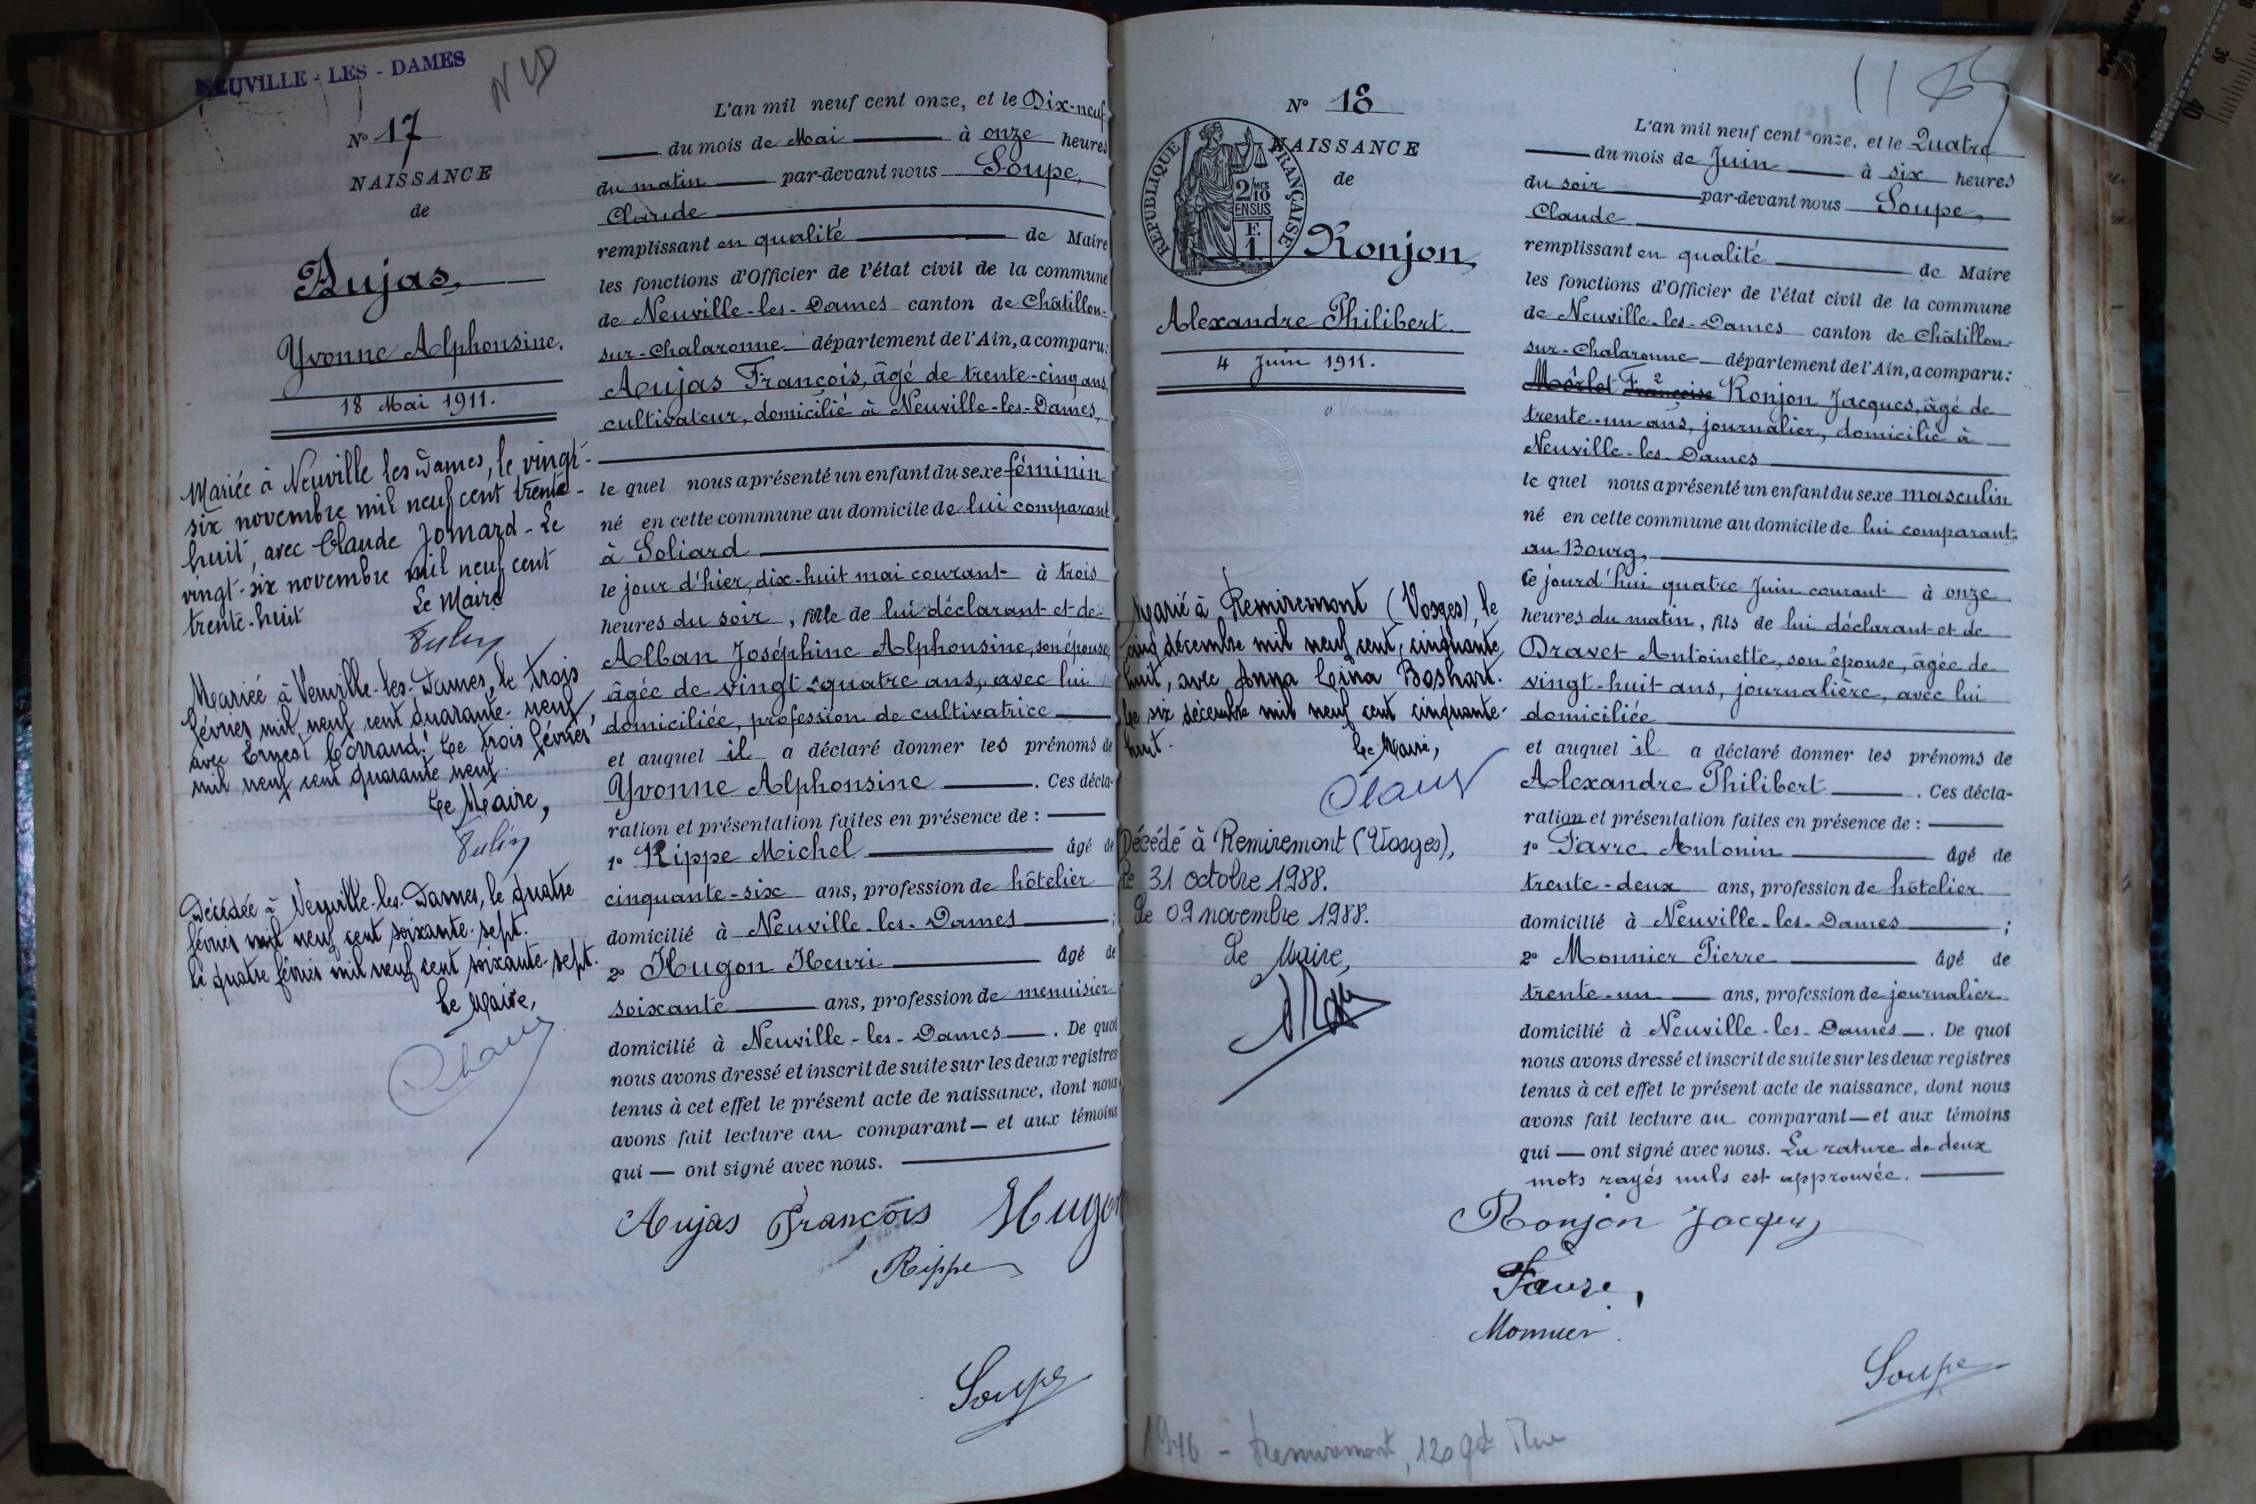 NEUVILLE - LES - DAMES
NLD
N° 17
NAISSANCE
de
Aujas,
Yvonne Alphonsine.
18 Mai 1911.
Mariée à Neuville les Dames, le vingt-
six novembre mil neuf cent trente-
huit, avec Claude Jomard - Le
vingt-six novembre mil neuf cent
trente-huit
Le Maire
Mariée à Neuville-les-Dames, le trois
février mil neuf cent quarante-neuf,
avec Ernest Corrand. Le trois février
mil neuf cent quarante neuf.
Le Maire,
Décédée à Neuville-les-Dames, le quatre
février mil neuf cent soixante-sept.
Le quatre février mil neuf cent soixante-sept.
Le Maire,
L'an mil neuf cent onze, et le Dix-neuf
du mois de Mai à onze heures
du matin par-devant nous Soupe,
Claude
remplissant en qualité de Maire
les fonctions d'Officier de l'état civil de la commune
de Neuville-les-Dames canton de Châtillon-
sur-Chalaronne département de l'Ain, a comparu:
Aujas François, âgé de trente-cinq ans,
cultivateur, domicilié à Neuville-les-Dames,
le quel nous a présenté un enfant du sexe féminin
né en cette commune au domicile de lui comparant
à Soliard
le jour d'hier, dix-huit mai courant à trois
heures du soir, fille de lui déclarant et de
Alban Joséphine Alphonsine, son épouse,
âgée de vingt-quatre ans, avec lui
domiciliée, profession de cultivatrice
et auquel il a déclaré donner les prénoms de
Yvonne Alphonsine. Ces décla-
ration et présentation faites en présence de :
1° Rippe Michel âgé de
cinquante-six ans, profession de hôtelier
domicilié à Neuville-les-Dames ;
2° Hugon Henri âgé de
soixante ans, profession de menuisier
domicilié à Neuville-les-Dames. De quoi
nous avons dressé et inscrit de suite sur les deux registres
tenus à cet effet le présent acte de naissance, dont nous
avons fait lecture au comparant — et aux témoins
qui — ont signé avec nous.
Aujas François Hugon
Rippe
Soupe
N° 18
NAISSANCE
de
RÉPUBLIQUE FRANÇAISE
2/10 MES
EN SUS
F.
1
Ronjon,
Alexandre Philibert
4 Juin 1911.
Marié à Remiremont (Vosges), le
cinq décembre mil neuf cent cinquante
huit, avec Anna Lina Boshart.
Le six décembre mil neuf cent cinquante-
huit.
Le Maire,
Décédé à Remiremont (Vosges),
le 31 octobre 1988.
Le 09 novembre 1988.
Le Maire,
L'an mil neuf cent onze, et le Quatre
du mois de Juin à six heures
du soir par-devant nous Soupe,
Claude
remplissant en qualité de Maire
les fonctions d'Officier de l'état civil de la commune
de Neuville-les-Dames canton de Châtillon-
sur-Chalaronne département de l'Ain, a comparu:
Morlet Françoise Ronjon Jacques, âgé de
trente-un ans, journalier, domicilié à
Neuville-les-Dames
le quel nous a présenté un enfant du sexe masculin
né en cette commune au domicile de lui comparant,
au Bourg,
ce jourd'hui quatre Juin courant à onze
heures du matin, fils de lui déclarant et de
Dravet Antoinette, son épouse, âgée de
vingt-huit ans, journalière, avec lui
domiciliée
et auquel il a déclaré donner les prénoms de
Alexandre Philibert. Ces décla-
ration et présentation faites en présence de :
1° Favre Antonin âgé de
trente-deux ans, profession de hôtelier
domicilié à Neuville-les-Dames ;
2° Monnier Pierre âgé de
trente-un ans, profession de journalier
domicilié à Neuville-les-Dames. De quoi
nous avons dressé et inscrit de suite sur les deux registres
tenus à cet effet le présent acte de naissance, dont nous
avons fait lecture au comparant — et aux témoins
qui — ont signé avec nous. La rature de deux
mots rayés nuls est approuvée.
Ronjon Jacques
Favre,
Monnier.
Soupe
1946 - Remiremont, 120 gde Rue